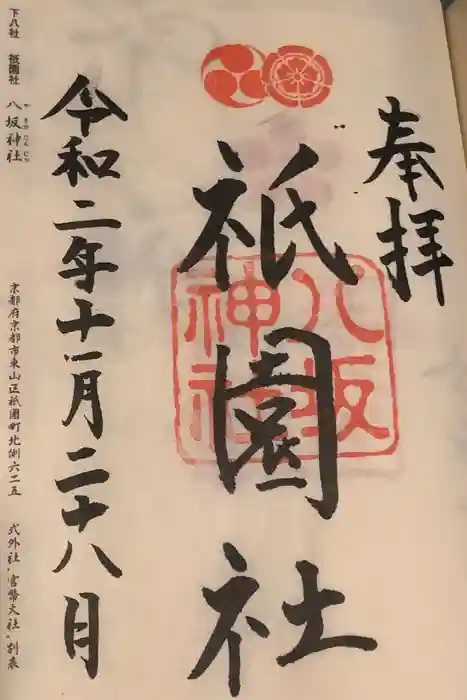 奉拝
祇園社
八坂神社
令和二年十一月二十八日
下八社 祇園社 八坂神社
やさかじんじゃ
京都府京都市東山区祇園町北側六二五
式外社、官幣大社、別表